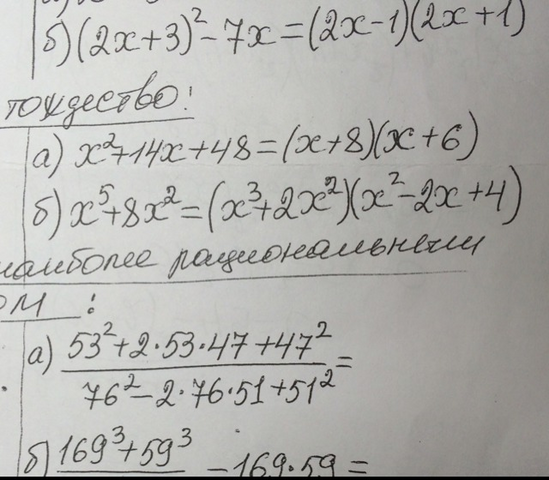 б) (2x+3)² - 7x = (2x-1)(2x+1)
тождество:
а) x²+14x+48 = (x+8)(x+6)
б) x⁵+8x² = (x³+2x²)(x²-2x+4)
наиболее рациональным
ом :
а) (53²+2·53·47+47²)/(76²-2·76·51+51²) =
б) 169³+59³ - 169·59 =